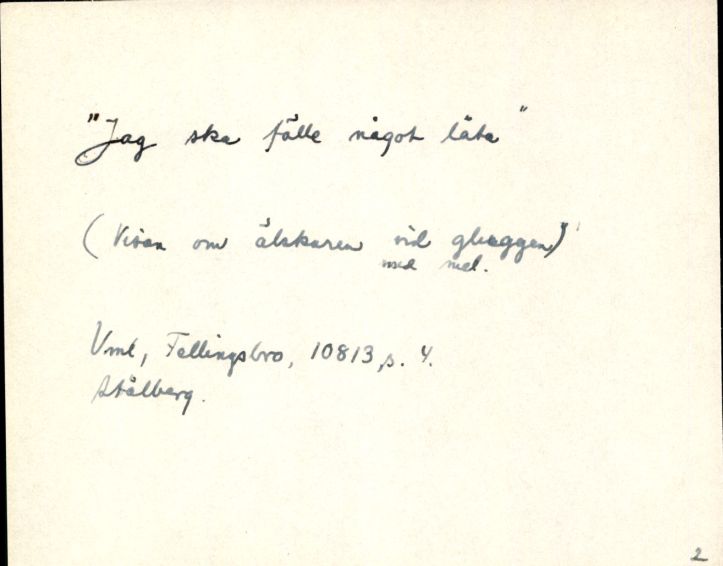 "Jag ska fälle något låta"
(Visan om älskaren vid gluggen)
med mel.
Vml, Fellingsbro, 10813, s. 4.
Stålberg.
2